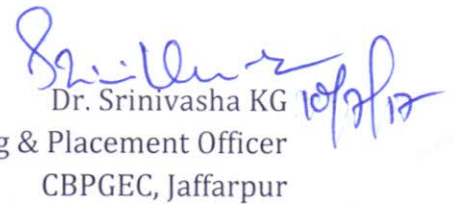 Dr. Srinivasha KG 10/7/17
g & Placement Officer
CBPGEC, Jaffarpur